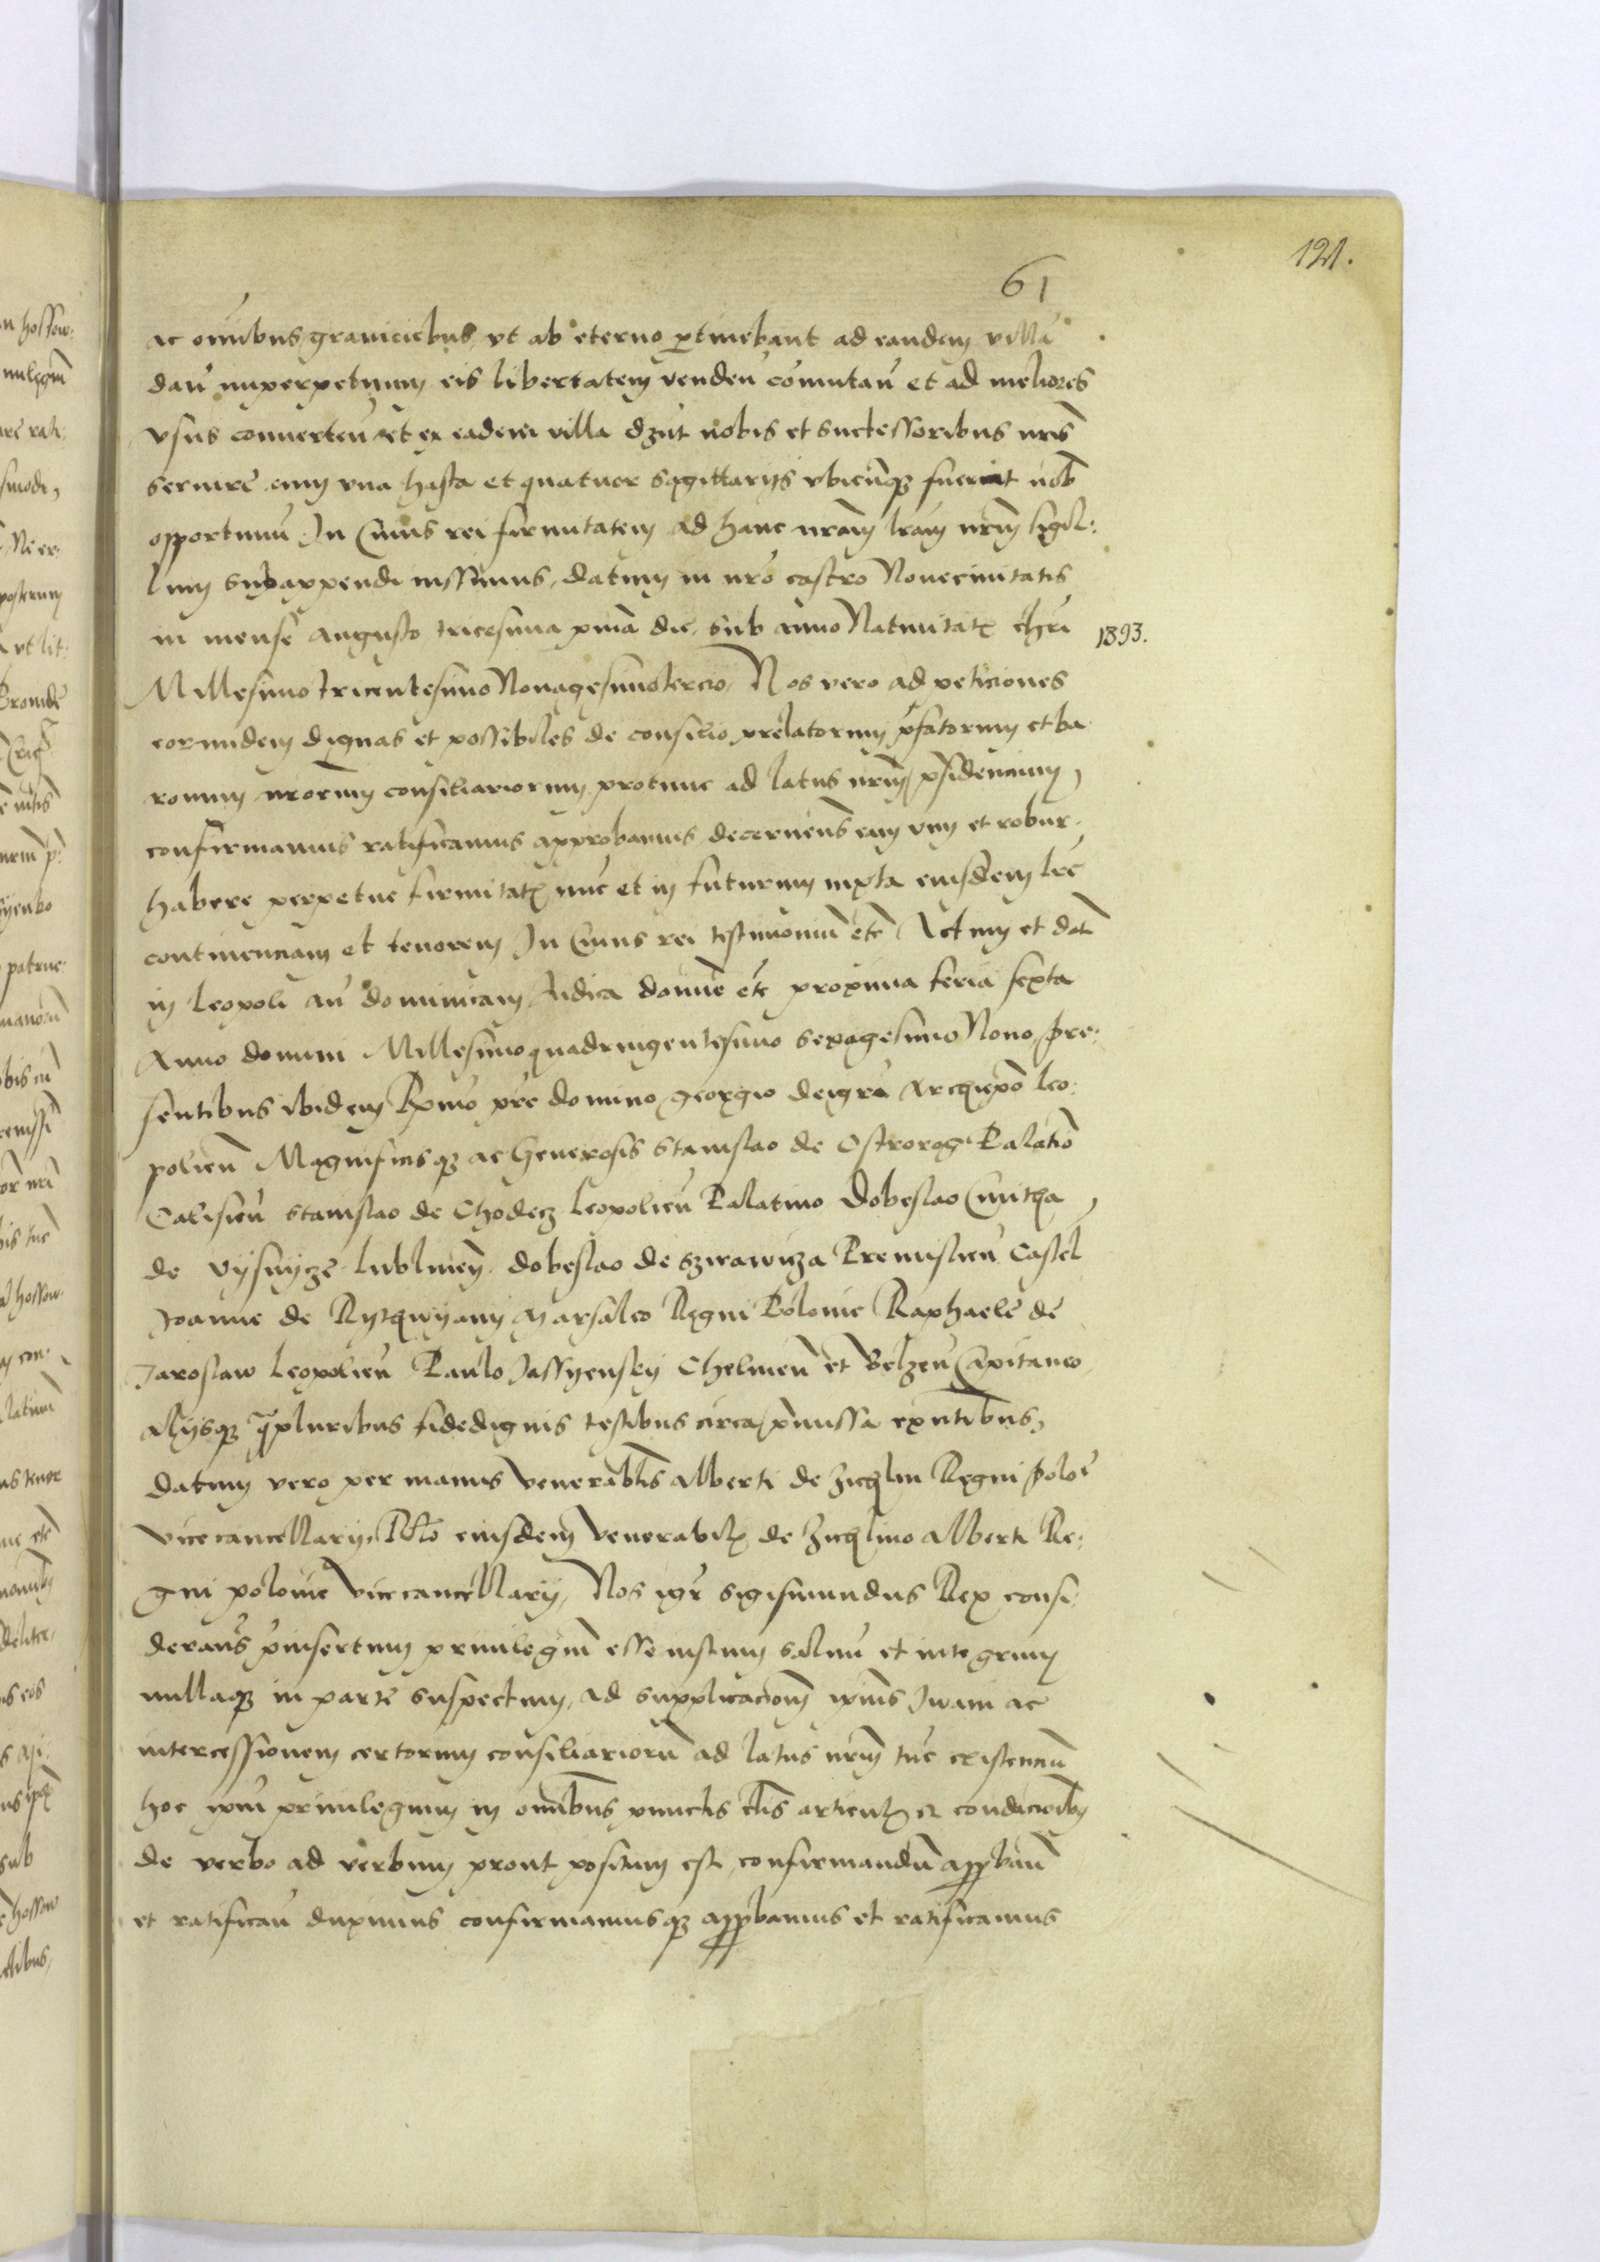 121.
61
ac omībus graniciebus, vt ab eterno ꝑtinebant ad eandem villā
daū imperpetuum eis libertatem venden̄ cōmutan̄ et ad meliores
vsus conuerten̄ et ex eadem villa dꝫut nobis et successoribus nr̄is
seruire cum vna hasta et quatuor sagittarijs vbicunqꝫ fuerint nob̄
opportunū. In Cuius rei firmitatem ad hanc nr̄am lr̄am nr̄m sigil:
lum subappendi iussimus, datum in nr̄o castro Nouecimitatis
in mense Augusto tricesima pr̄ma die, sub anno Natiuitatꝭ chr̄i
1393.
Millesimo tricentesimo Nonagesimotercio, Nos vero ad peticiones
eorundem dignas et possibiles de consilio prelatorum pr̄fatorum et ba
ronum nr̄orum consiliariorum protunc ad latus nr̄um pr̄sidencium,
confirmamus ratificamus approbamus decernen̄s eam vim et robur
habere perpetue firmitatꝭ nūc et in futurum iuxta eiusdem lr̄e
continenciam et tenorem In Cuius rei testimoniū etc̄ Actum et dat̄
in Leopoli an̄ dominicam Iudica domīe etc̄ proxima feria sexta
Anno domini Millesimoquadringentesimo sexagesimo Nono, Pre:
sentibus ibidem Rx̄mo pr̄e domino georgio dei gr̄a Archiep̄o Leo:
polien̄ Magnificisqꝫ ac Generosis Stanislao de Ostrorog Palatiō
Calisien̄ Stanislao de Chodecz Leopolien̄ Palatino Dobeslao Cmitha
de Vysnycze Lublinen̄, dobeslao de Szirawicza Premislien̄ Castel̄
Joanne de Rythwyany Marsalco Regni Polonie Raphaele de
Jaroslaw Leopolien̄ Paulo Jassyensky Chelmen̄ et Belzen̄ Capitaneo
Alijsqꝫ q̄pluribus fidedignis testibus circa pr̄missa ex̄ntibus,
datum vero per manus Venerabl̄is Alberti de Zichlin Regni Polo͠e
vicecancellarij, Rl̄o eiusdem Venerabilꝭ de Zichlino Alberti Re:
gni polonie Vicecancellarij, Nos igr̄ Sigismundus Rex consi:
deran̄s pr̄insertum priuilegiū esse iustum saluū et integrum
nullaqꝫ in parte suspectum, ad supplicacionē ip̄ius Iwani ac
intercessionem certorum consiliariorū ad latus nr̄um tūc existenciū
hoc ip̄m priuilegium in omībus punctis cl̄is articulꝭ et condicioībꝫ
de verbo ad verbum prout positum est, confirmandū appꝛban̄
et ratifican̄ duximus confirmamusqꝫ appꝛbamus et ratificamus